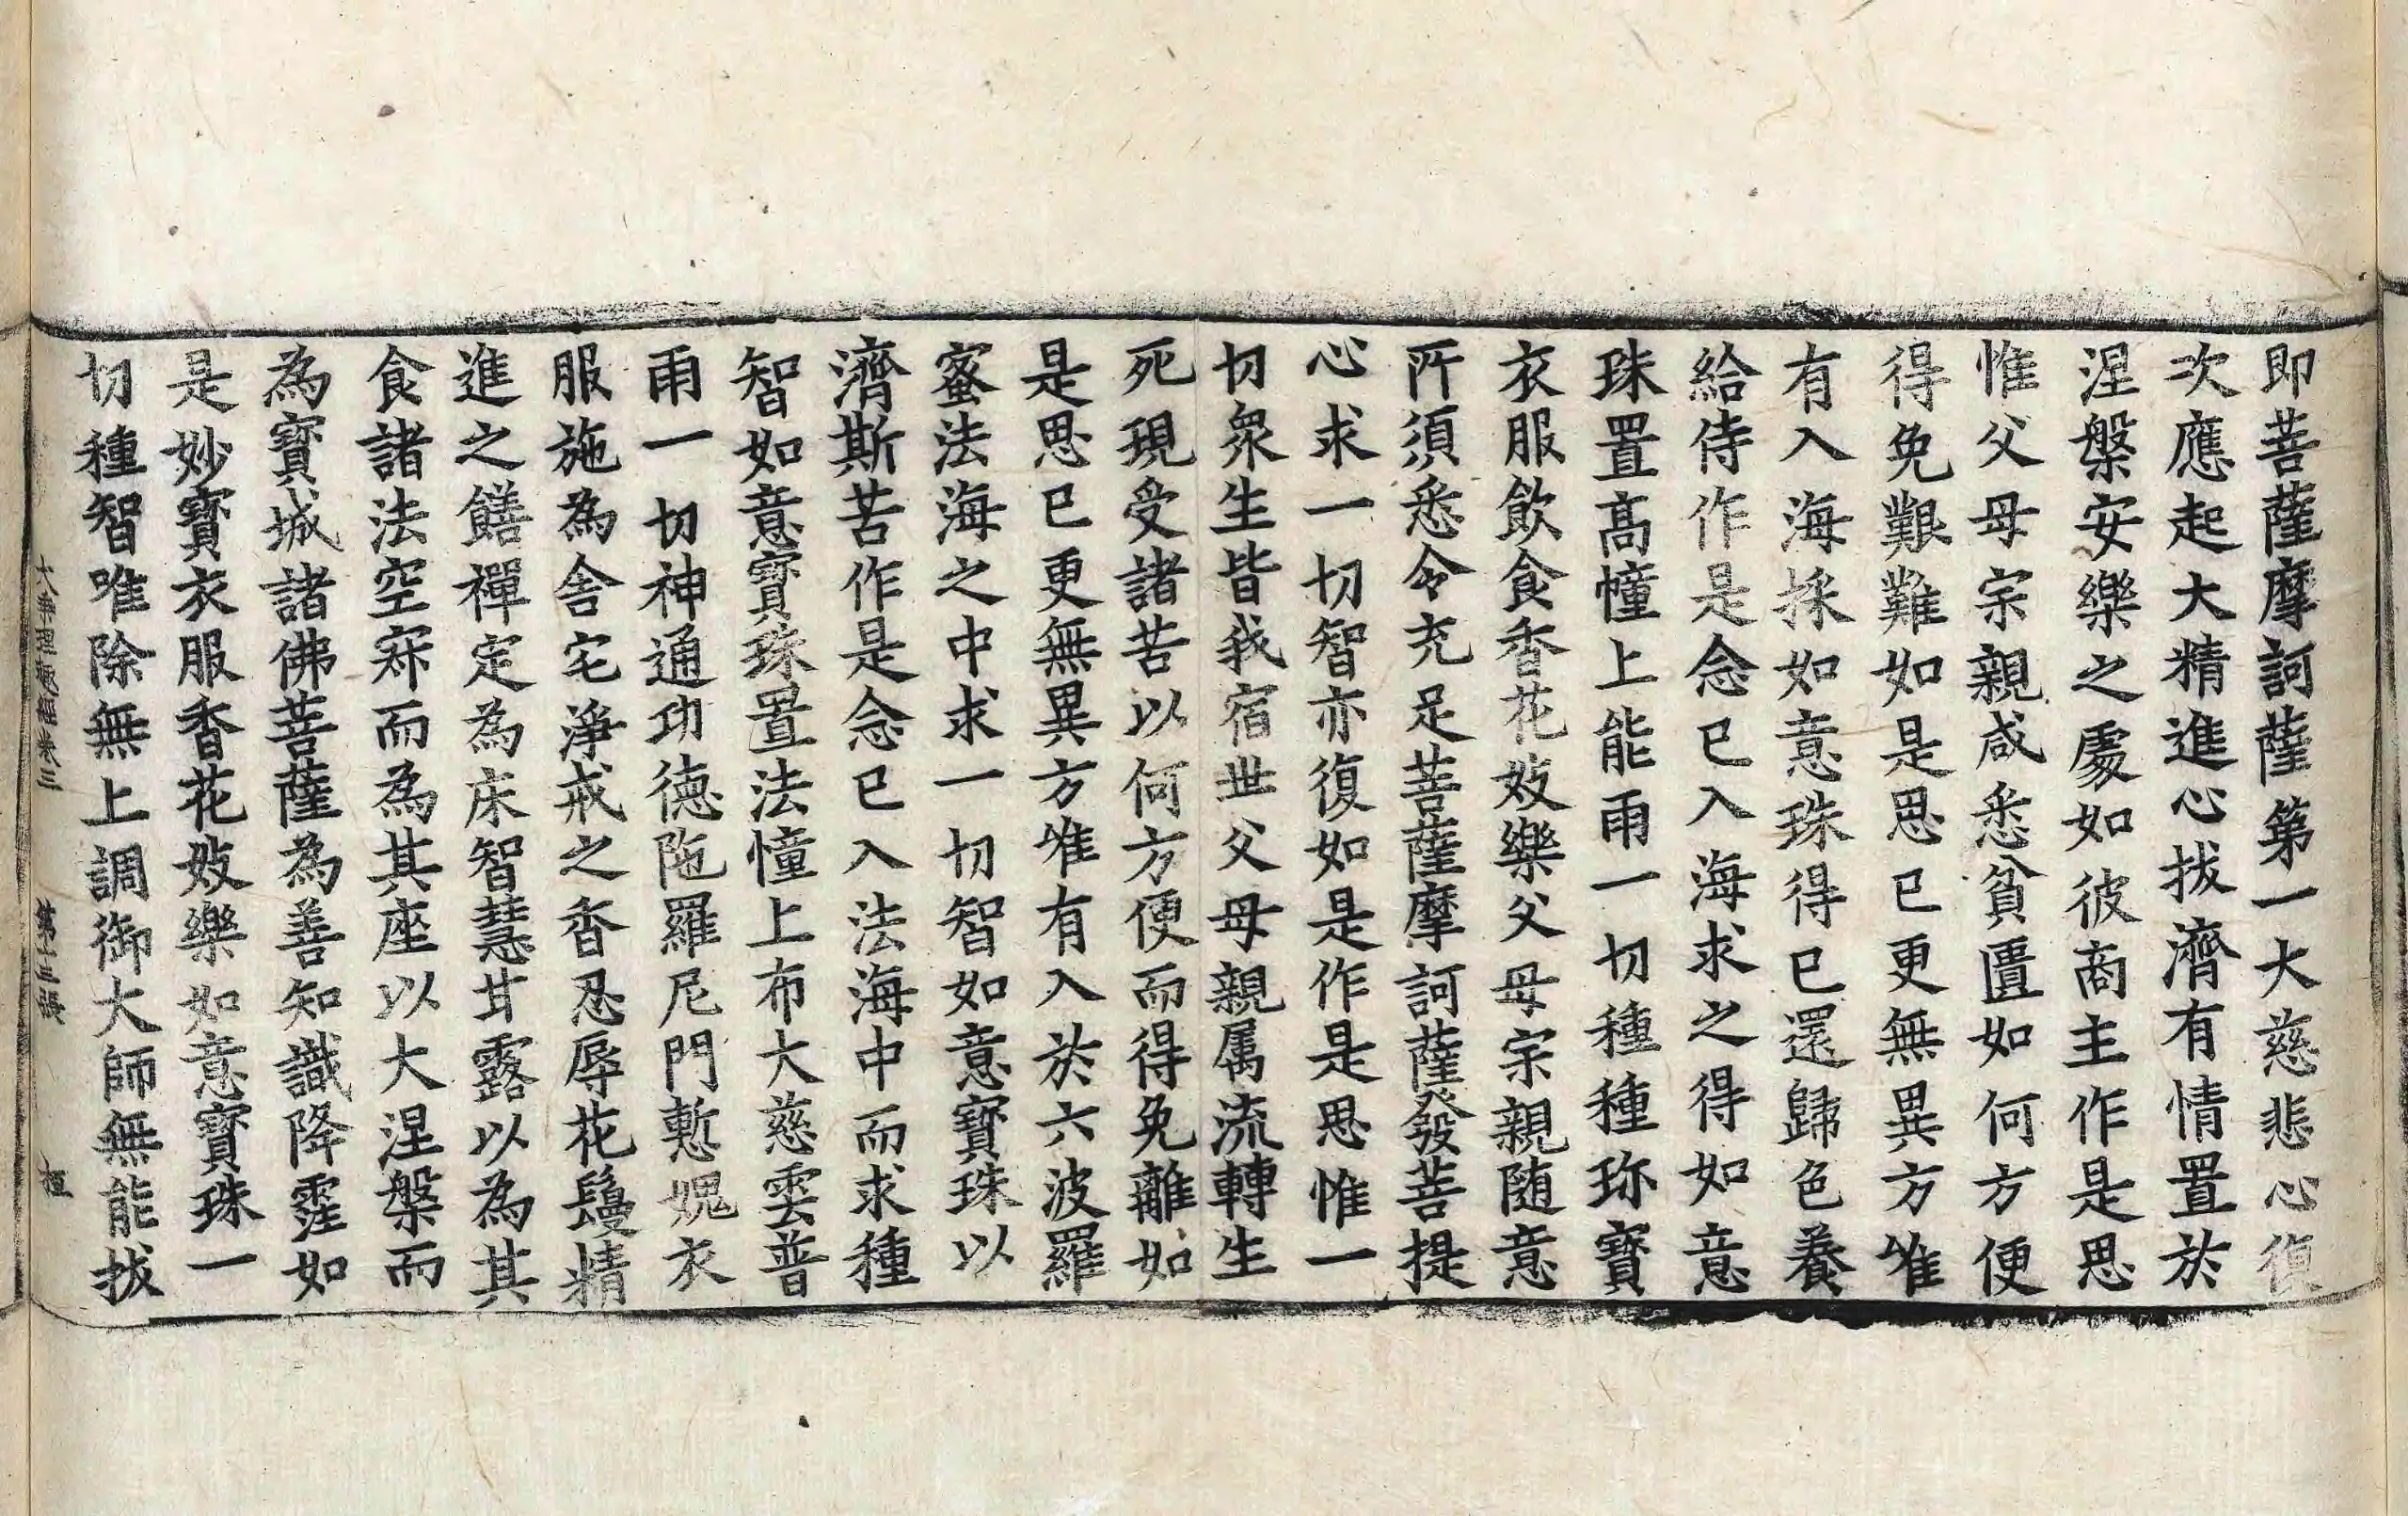 即菩薩摩訶薩第一大慈悲心復
次應起大精進心拔濟有情置於
涅槃安樂之處如彼商主作是思
惟父母宗親咸悉貧匱如何方便
得免艱難如是思已更無異方唯
有入海採如意珠得已還歸色養
給侍作是念已入海求之得如意
珠置髙幢上能雨一切種種珎寶
衣服飲食香花妓樂父母宗親随意
所須悉令充足菩薩摩訶薩發菩提
心求一切智亦復如是作是思惟一
切衆生皆我宿世父母親属流轉生
死現受諸苦以何方便而得免離如
是思已更無異方唯有入於六波羅
蜜法海之中求一切智如意寶珠以
濟斯苦作是念已入法海中而求種
智如意寶珠置法幢上布大慈雲普
雨一切神通功德陁羅尼門慙愧衣
服施為舎宅淨戒之香忍辱花鬘精
進之饍禪定為床智慧甘露以為其
食諸法空寂而為其座以大涅槃而
為寶城諸佛菩薩為善知識降霔如
是妙寶衣服香花妓樂如意寶珠一
切種智唯除無上調御大師無能拔
大乘理趣經卷三 第十三張